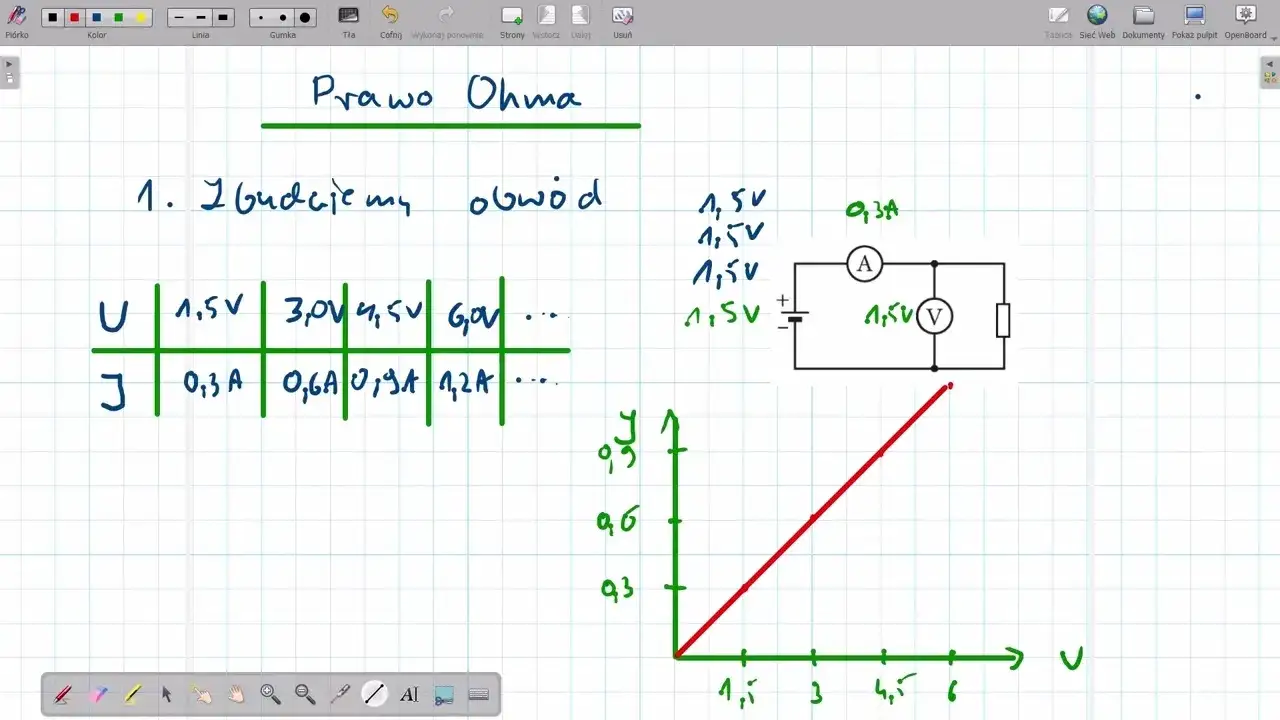 Piórko Kolor Linia Gumka Tła Cofnij Wykonaj ponownie Strony Wstecz Dalej Usuń Tablica Sieć Web Dokumenty Pokaż pulpit OpenBoard
Prawo Ohma
1. Zbudujemy obwód
U 1,5V 3,0V 4,5V 6,0V ...
I 0,3A 0,6A 0,9A 1,2A ...
1,5V
1,5V
1,5V
1,5V
0,3A
A
+
−
1,5V V
I
0,9
0,6
0,3
1,5 3 4,5 6 U
AI